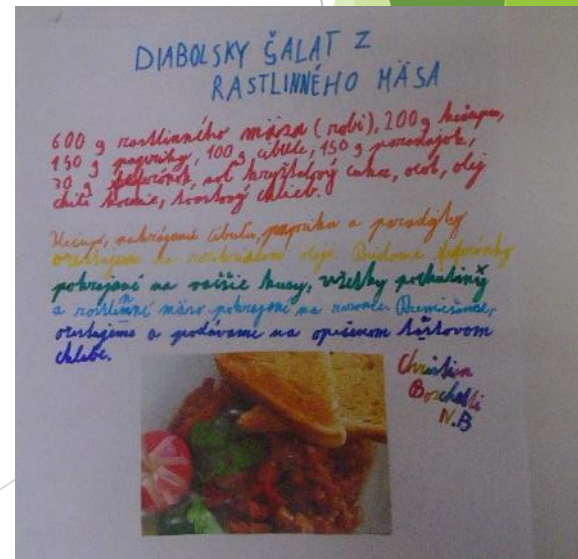 DIABOLSKY ŠALAT Z
RASTLINNÉHO MÄSA
600 g rastlinného mäsa (robi), 200 g kečupu,
150 g papriky, 100 g cibule, 150 g paradajok,
70 g feferónok, soľ kryštálový cukor, ocot, olej
chili korenie, toastový chlieb.
Kečup, nakrájanú cibuľu, papriku a paradajky
orestujeme na rozohriatom oleji. Pridáme feferónky
pokrájané na väčšie kusy, všetky pochutiny
a rastlinné mäso pokrájané na rezance. Premiešame,
orestujeme a podávame na opečenom toastovom
chlebe.
Christian
N.B